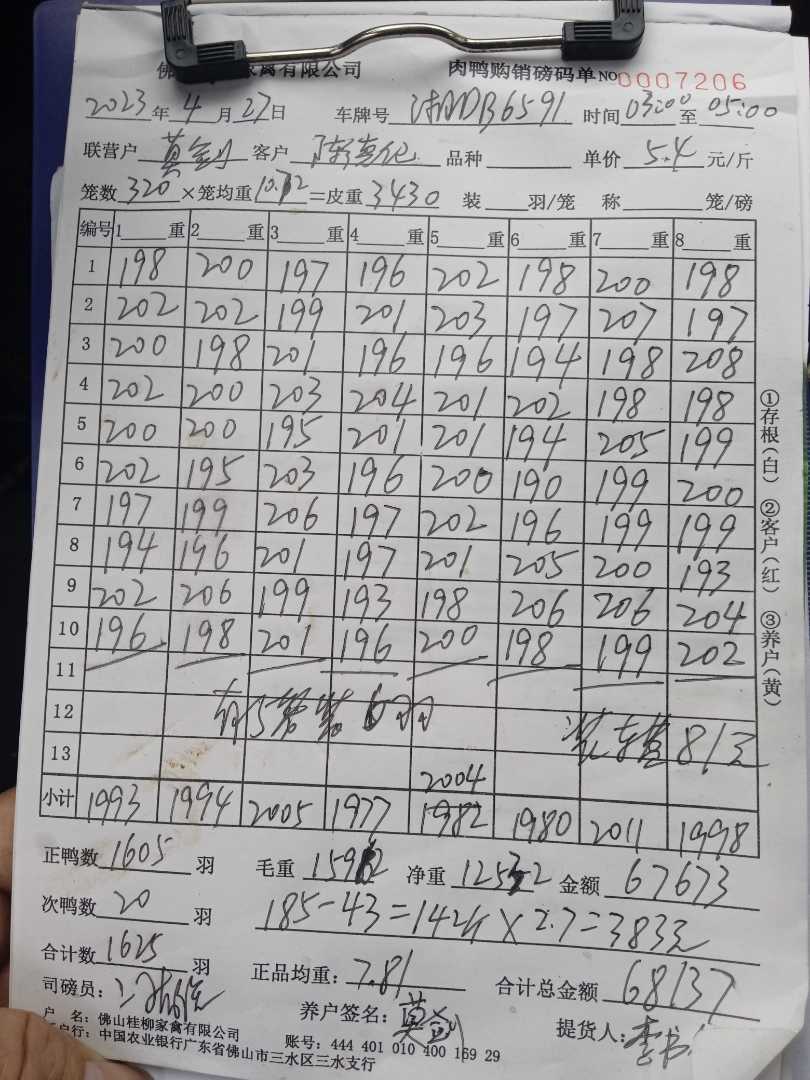 家禽有限公司 肉鸭购销磅码单 NO 0007206
2023年4月27日 车牌号 DB6591 时间03:00至05:00
联营户 黄 客户 品种 单价 5.4 元/斤
笼数 320 ×笼均重 10.72 =皮重 3430 装 羽/笼 称 笼/磅
编号 1 重 2 重 3 重 4 重 5 重 6 重 7 重 8 重
1 198 200 197 196 202 198 200 198
2 202 202 199 201 203 197 207 197
3 200 198 201 196 196 194 198 208
4 202 200 203 204 201 202 198 198
5 200 200 195 201 201 194 205 199
6 202 195 203 196 200 190 199 200
7 197 199 206 197 202 196 199 199
8 194 196 201 197 201 205 200 193
9 202 206 199 193 198 206 206 204
10 196 198 201 196 200 198 199 202
11
12 装车 81元
13 2004
小计 1993 1994 2005 1977 1982 1980 2011 1998
正鸭数 1605 羽 毛重 15962 净重 12532 金额 67673
次鸭数 20 羽 185-43=142斤×2.7=383元
合计数 1625 羽 正品均重: 7.81 合计总金额 68137
司磅员: 养户签名: 黄 提货人: 李书
户 名: 佛山桂柳家禽有限公司
户行: 中国农业银行广东省佛山市三水区三水支行 账号: 444 401 010 400 169 29
①存根(白) ②客户(红) ③养户(黄)